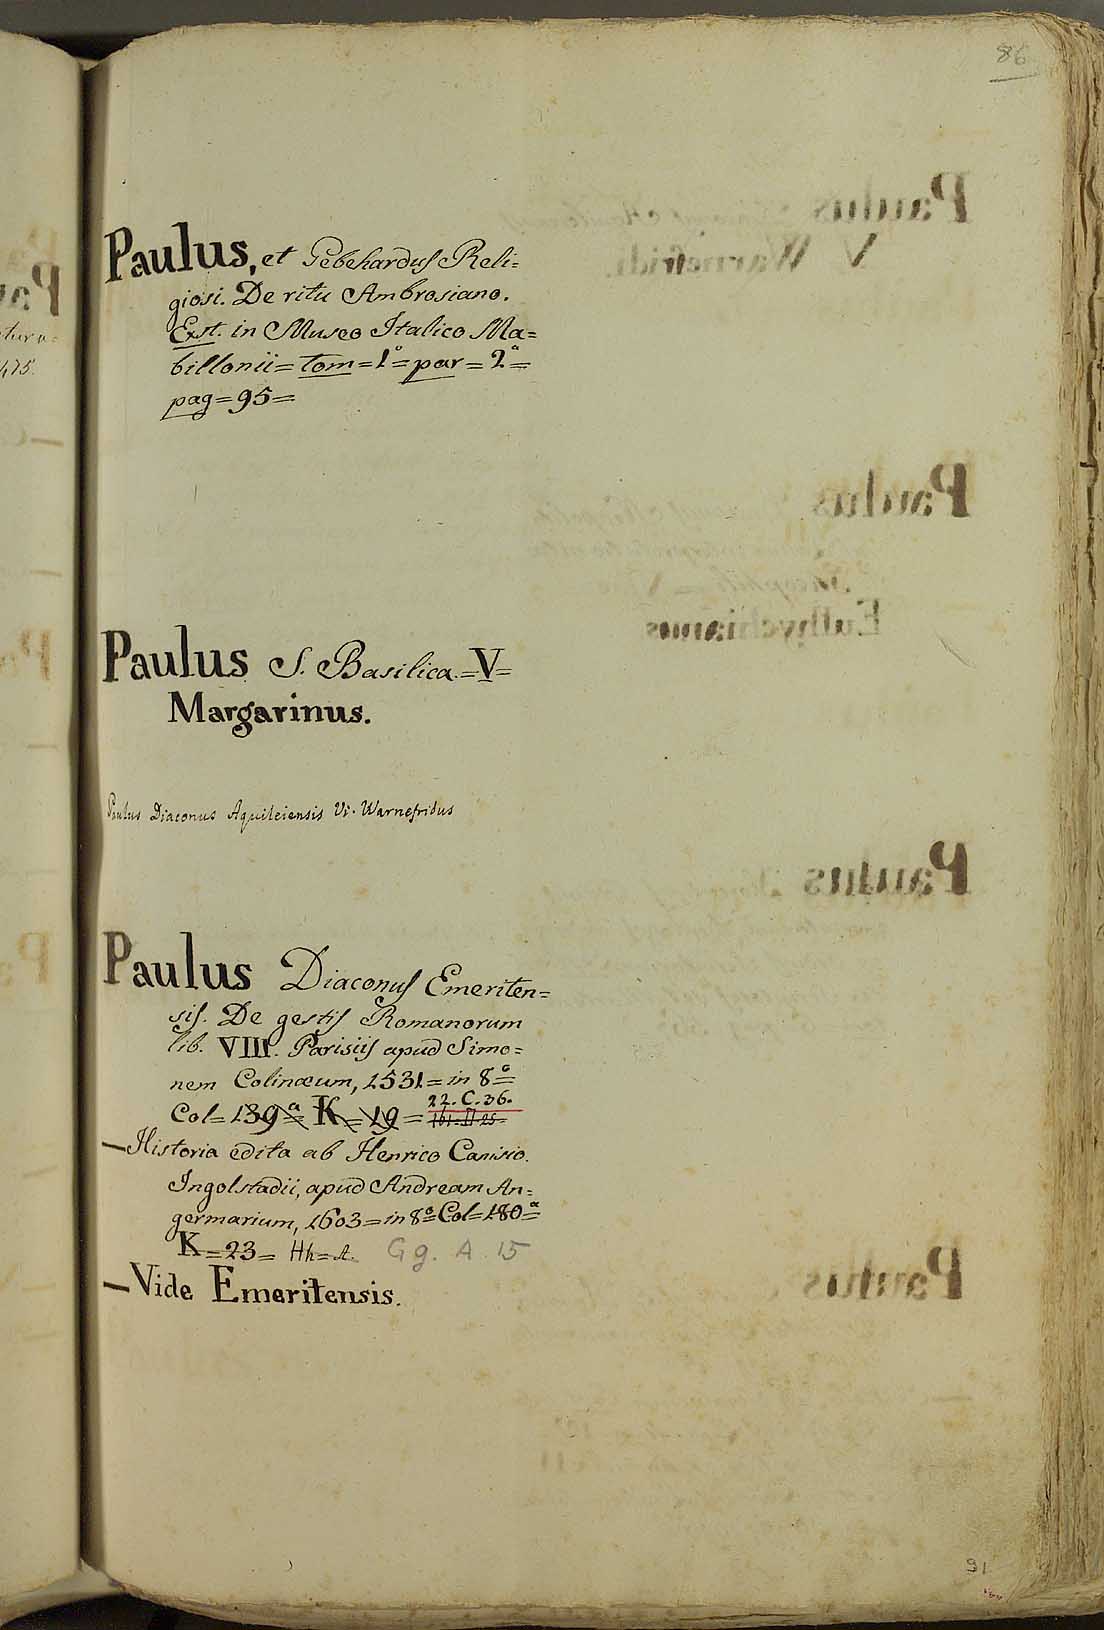 86
Paulus, et Gebehardus Reli=
giosi. De ritu Ambrosiano.
Ext. in Museo Italico Ma=
billonii = tom = 1º = par = 2ª =
pag = 95 =
Paulus S. Basilica. = V =
Margarinus.
Paulus Diaconus Aquileiensis Vi. Warnefridus
Paulus Diaconus Emeriten=
sis. De gestis Romanorum
lib. VIII. Parisiis apud Simo=
nem Colinæum, 1531. = in 8º =
22. C. 36.
Col = 139ª = K = 19 =
— Historia edita ab Henrico Canisio.
Ingolstadii, apud Andream An=
germarium, 1603 = in 8º = Col = 180ª =
K = 23 = Hh = A. Gg. A. 15
— Vide Emeritensis.
91